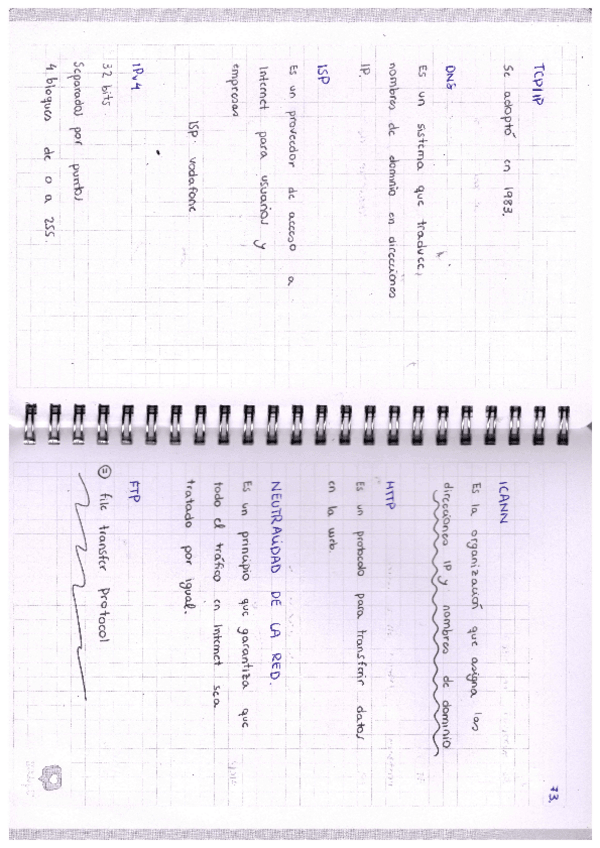 TCP/IP
Se adoptó en 1983.
DNS
Es un sistema que traduce,
nombres de dominio en direcciones
IP.
ISP
Es un proveedor de acceso a
Internet para usuarios y
empresas
ISP: vodafone
IPv4
32 bits.
Separados por puntos
4 bloques de 0 a 255.
73.
ICANN
Es la organización que asigna las
direcciones IP y nombres de dominio
HTTP
Es un protocolo para transferir datos
en la web.
NEUTRALIDAD DE LA RED.
Es un principio que garantiza que
todo el tráfico en Internet sea
tratado por igual.
FTP
= file transfer Protocol